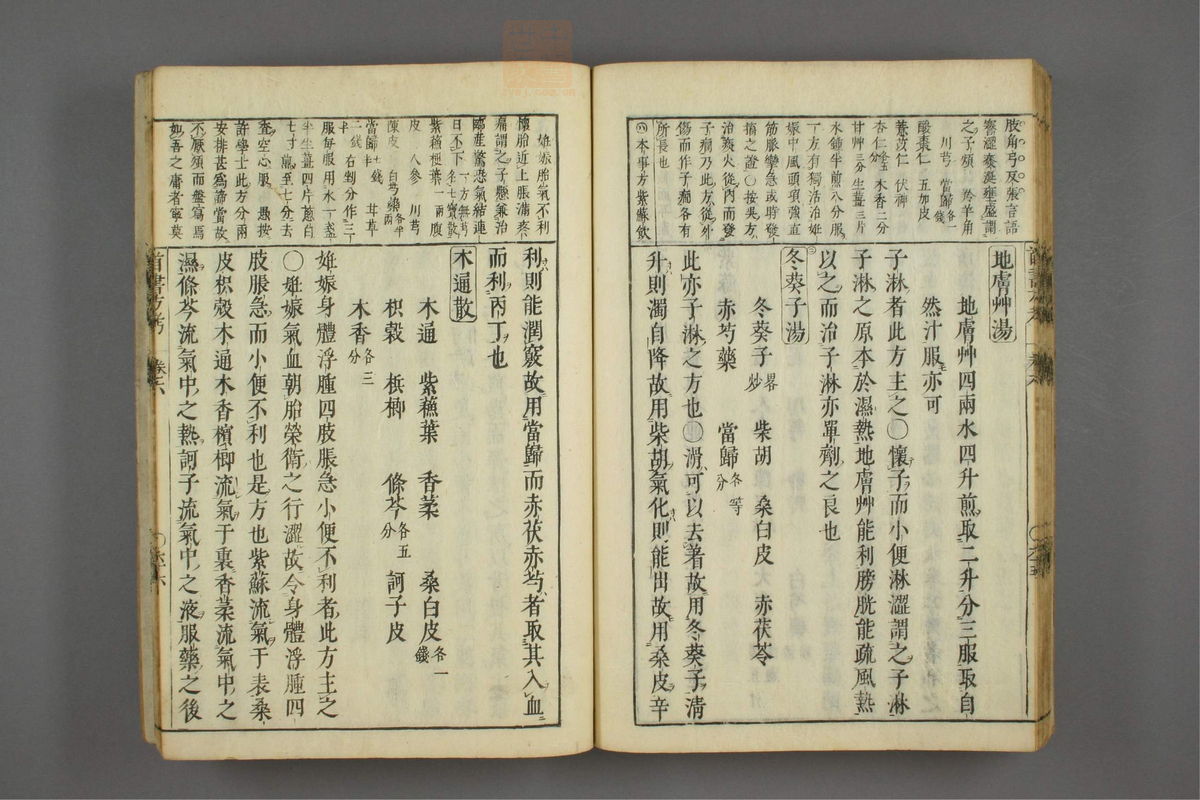 肢角弓反張言語
蹇澀痰涎壅盛謂
之子癇　羚羊角
川芎　當歸各錢
酸棗仁　五加皮
薏苡仁　伏神
杏仁各五分　木香二分
甘艸三分　生薑三片
水鍾半煎八分服
一方有獨活治妊
娠中風頭項強直
筋脈攣急或時發
搐之證○按吳方
治痰火從內而發
子癇乃此方從外
傷而作子癇各有
所長也
本事方紫蘇飲
地膚艸湯
地膚艸四兩水四升煎取二升分三服取自
然汁服亦可
子淋者此方主之○懷子而小便淋澀謂之子淋
子淋之原本於濕熱地膚艸能利膀胱能疏風熱
以之而治子淋亦單劑之良也
冬葵子湯
冬葵子畧炒　柴胡　桑白皮　赤茯苓
赤芍藥　當歸各等分
此亦子淋之方也○滑可以去著故用冬葵子清
升則濁自降故用柴胡氣化則能出故用桑皮辛
妊娠胎氣不利
懷胎近上脹滿疼
痛謂之子懸兼治
臨產驚恐氣結連
日不下
紫蘇梗葉一兩　腹
皮　人參　川芎
陳皮　白芍藥各半兩
當歸　甘草
右剉分作三
服每服用水一盞
半生薑四片蔥白
七寸煎至七分去
查空心服　愚按
許學士此方分兩
安排甚爲諦當故
不厭煩而盤寫焉
如吾之庸者寧莫
利則能潤竅故用當歸而赤茯赤芍者取其入血
而利丙丁也
木通散
木通　紫蘓葉　香薷　桑白皮各一錢
枳殼　梹榔　條芩各五分　訶子皮
木香各三分
妊娠身體浮腫四肢脹急小便不利者此方主之
○妊娠氣血朝胎榮衛之行澀故令身體浮腫四
肢脹急而小便不利也是方也紫蘇流氣于表桑
皮枳殼木通木香檳榔流氣于裏香薷流氣中之
濕條芩流氣中之熱訶子流氣中之液服藥之後
首書方考　卷六